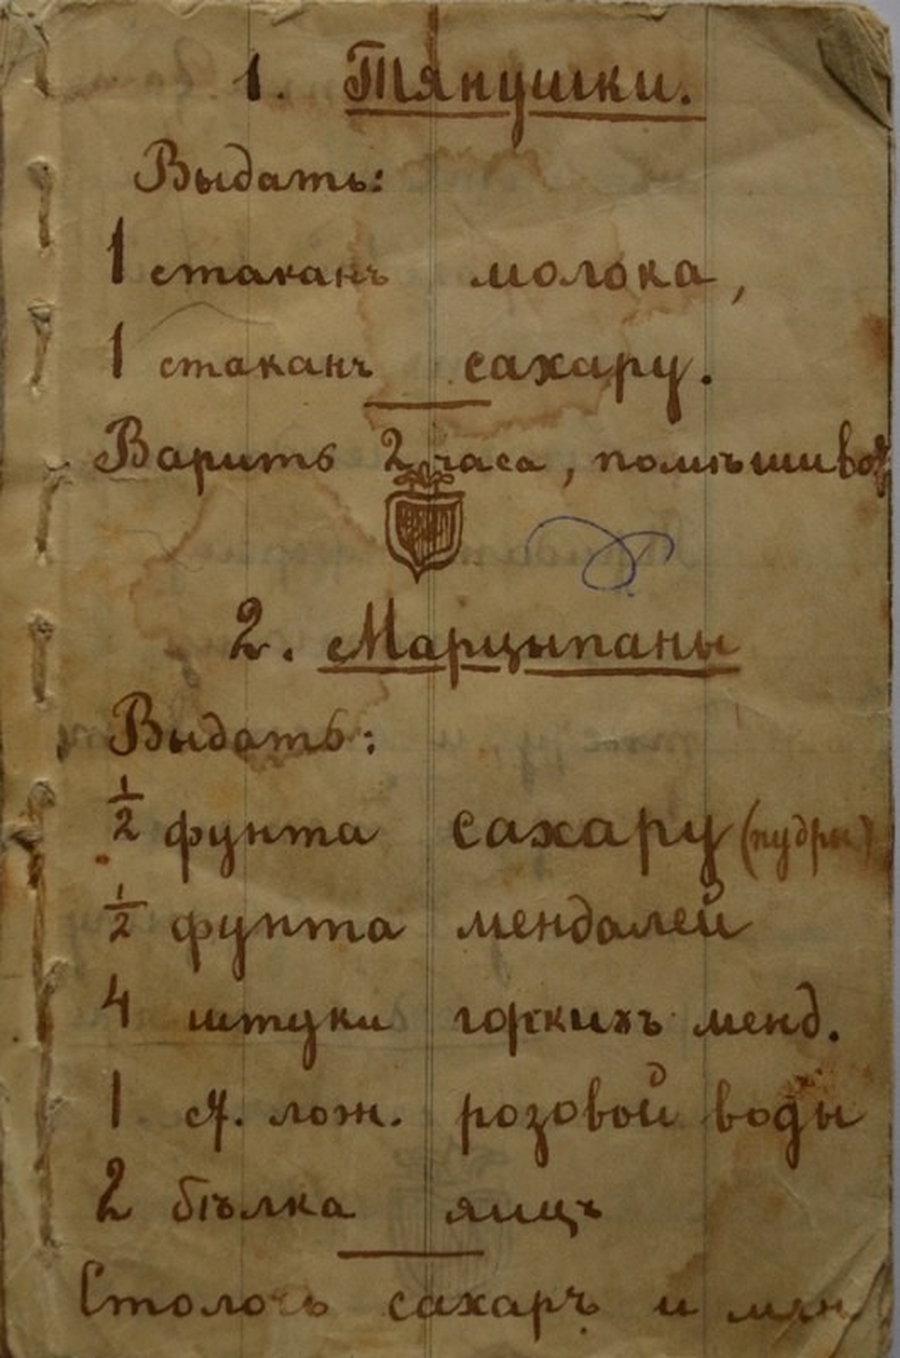 1. Тянушки.
Выдать:
1 стаканъ молока,
1 стаканъ сахару.
Варить 2 часа, помѣшивая
2. Марцыпаны
Выдать:
1/2 фунта сахару (пудры)
1/2 фунта мендалей
4 штуки горкихъ менд.
1 ст. лож. розовой воды
2 бѣлка яицъ
Столочь сахаръ и